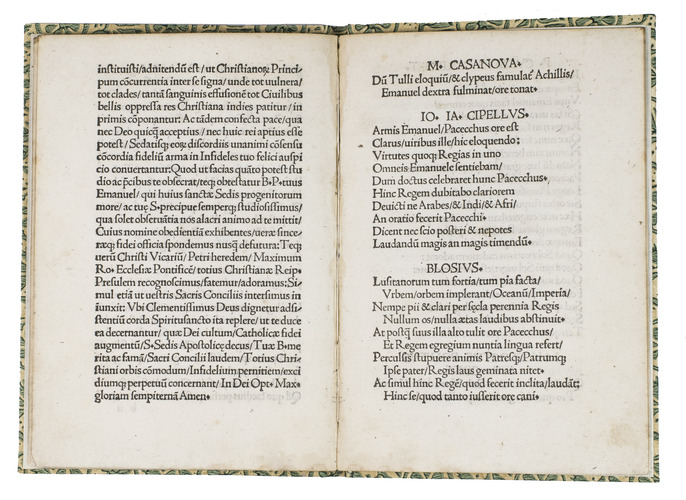 instituisti/adnitendū est/ut Christianoꝝ Princi-
pum cōcurrentia inter se signa/unde tot uulnera/
tot clades/tanta sanguinis effusionē tot Ciuilibus
bellis oppressa res Christiana indies patitur/in
primis cōponantur: Ac tādem confecta pace/qua
nec Deo quicꝗ acceptius/nec huic rei aptius esse
potest/Sedatisqꝫ eoꝝ discordiis unanimi cōsensu
cōcordia fideliū arma in Infideles tuo felici auspi
cio conuertantur: Quod ut facias quāto potest stu
dio ac p̄cibus te obsecrat/teqꝫ obtestatur B.P. tuus
Emanuel/qui huius sanctæ Sedis progenitorum
more/ac tuę S. præcipue semperqꝫ studiosissimus/
qua solet obseruātia nos alacri animo ad te mittit/
Cuius nomine obedientiā exhibentes/ueræ since-
ræqꝫ fidei officia spondemus nusꝗ defutura: Teqꝫ
uerū Christi Vicariū/Petri heredem/Maximum
Ro. Ecclesiæ Pontificē/totius Christianæ Reip.
Presulem recognoscimus/fatemur/adoramus: Si-
mul etiā ut uestris Sacris Conciliis intersimus in
iunxit: Vbi Clementissimus Deus dignetur adsi-
stentiū corda Spiritusancto ita replere/ut te duce
ea decernantur/quæ Dei cultum/Catholicæ fidei
augmentū/S. Sedis Apostolicę decus/Tuæ B. me
rita ac famā/Sacri Concilii laudem/Totius Chri-
stiani orbis cōmodum/Infidelium pernitiem/exci
diumqꝫ perpetuū concernant/In Dei Opt. Max.
gloriam sempiternā Amen.
M. CASANOVA.
Dū Tulli eloquiū/& clypeus famulat᷑ Achillis/
Emanuel dextra fulminat/ore tonat.
IO. IA. CIPELLVS.
Armis Emanuel/Pacecchus ore est
Clarus/uiribus ille/hic eloquendo:
Virtutes quoqꝫ Regias in uno
Omneis Emanuele sentiebam/
Dum doctus celebraret hunc Pacecchus.
Hinc Regem dubitabo clariorem
Deuicti ne Arabes/& Indi/& Afri/
An oratio fecerit Pacecchi.
Dicent nescio posteri & nepotes
Laudandū magis an magis timendū.
BLOSIVS.
Lusitanorum tum fortia/tum pia facta/
Vrbem/orbem implerant/Oceanū/Imperia/
Nempe pii & clari per secla perennia Regis
Nullum os/nulla ætas laudibus abstinuit.
At postꝗ suus illa alto tulit ore Pacecchus/
Et Regem egregium nuntia lingua refert/
Perculsis stupuere animis Patresqꝫ/Patrumqꝫ
Ipse pater/Regis laus geminata nitet.
Ac simul hinc Regē/quod fecerit inclita/laudāt:
Hinc se/quod tanto iusserit ore cani.